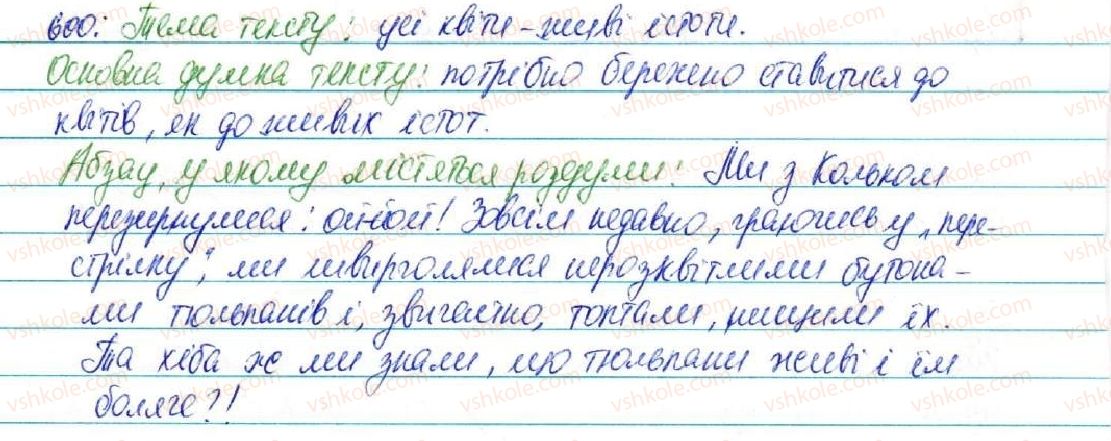 600. Тема тексту: усі квіти - живі істоти.
Основна думка тексту: потрібно бережено ставитися до
квітів, як до живих істот.
Абзац, у якому містяться роздуми: Ми з Кольком
перезирнулися: ой-йой! Зовсім недавно, граючись у „пере-
стрілку", ми ширгалялися нерозквітлими бутона-
ми тюльпанів і, звичайно, топтали, нищили їх.
Та хіба ж ми знали, що тюльпани живі і їм
боляче?!